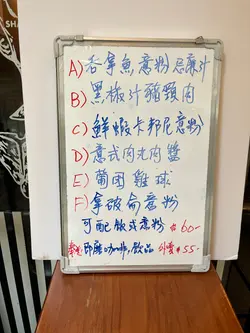 A) 吞拿魚意粉忌廉汁
B) 黑椒汁豬頸肉
C) 鮮蝦卡邦尼意粉
D) 意式肉丸肉醬
E) 葡国雞球
F) 拿破侖意粉
可配飯或意粉 $60-
即磨咖啡,飲品 外賣 $55-